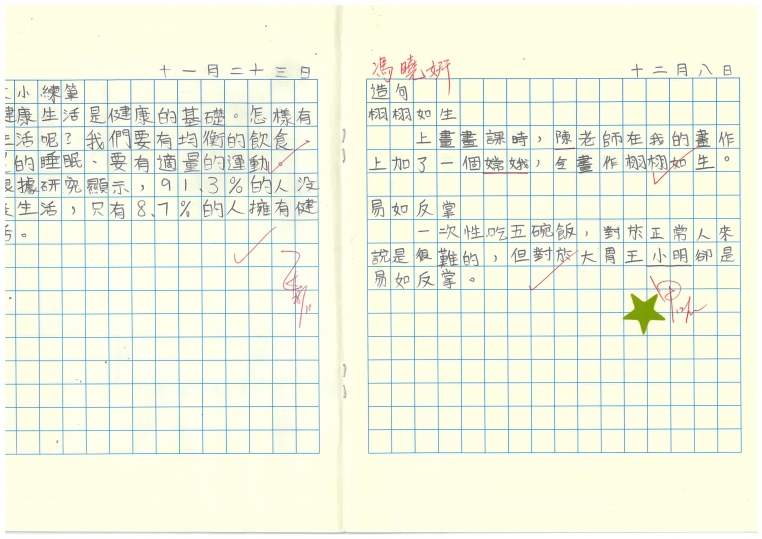 十一月二十三日
小練筆
健康生活是健康的基礎。怎樣有
生活呢?我們要有均衡的飲食、
的睡眠、要有適量的運動。
根據研究顯示，91.3%的人沒
生活，只有8.7%的人擁有健
活。
馮曉妍
十二月八日
造句
栩栩如生
上畫畫課時，陳老師在我的畫作
上加了一個嫦娥，令畫作栩栩如生。
易如反掌
一次性吃五碗飯，對於正常人來
說是很難的，但對於大胃王小明卻是
易如反掌。
甲